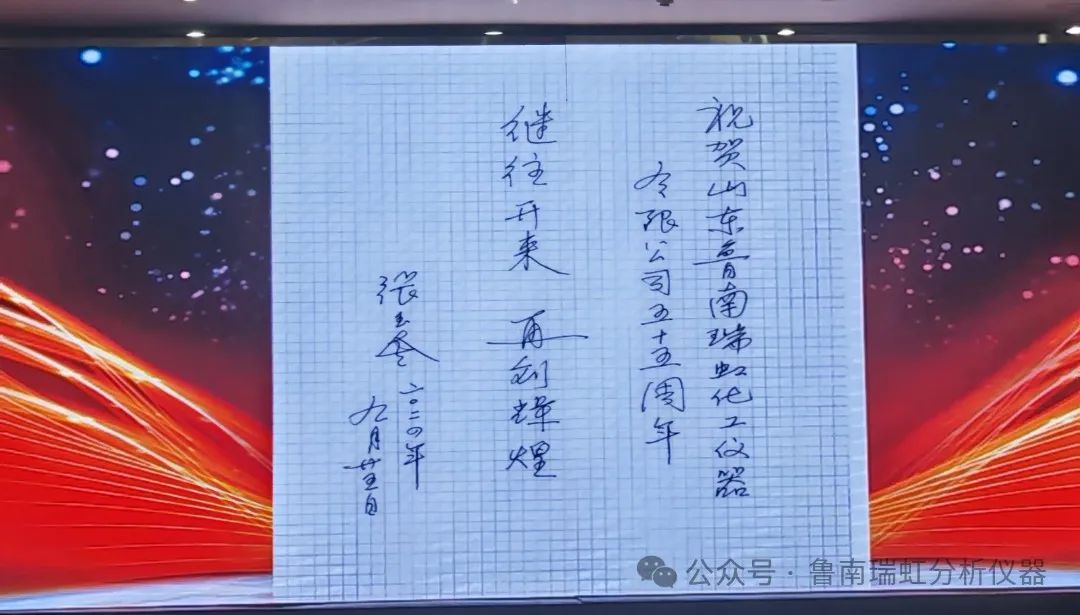 祝贺山东鲁南瑞虹化工仪器
有限公司五十五周年
继往开来 再创辉煌
张玉奎
二〇二四年
九月廿五日
公众号·鲁南瑞虹分析仪器